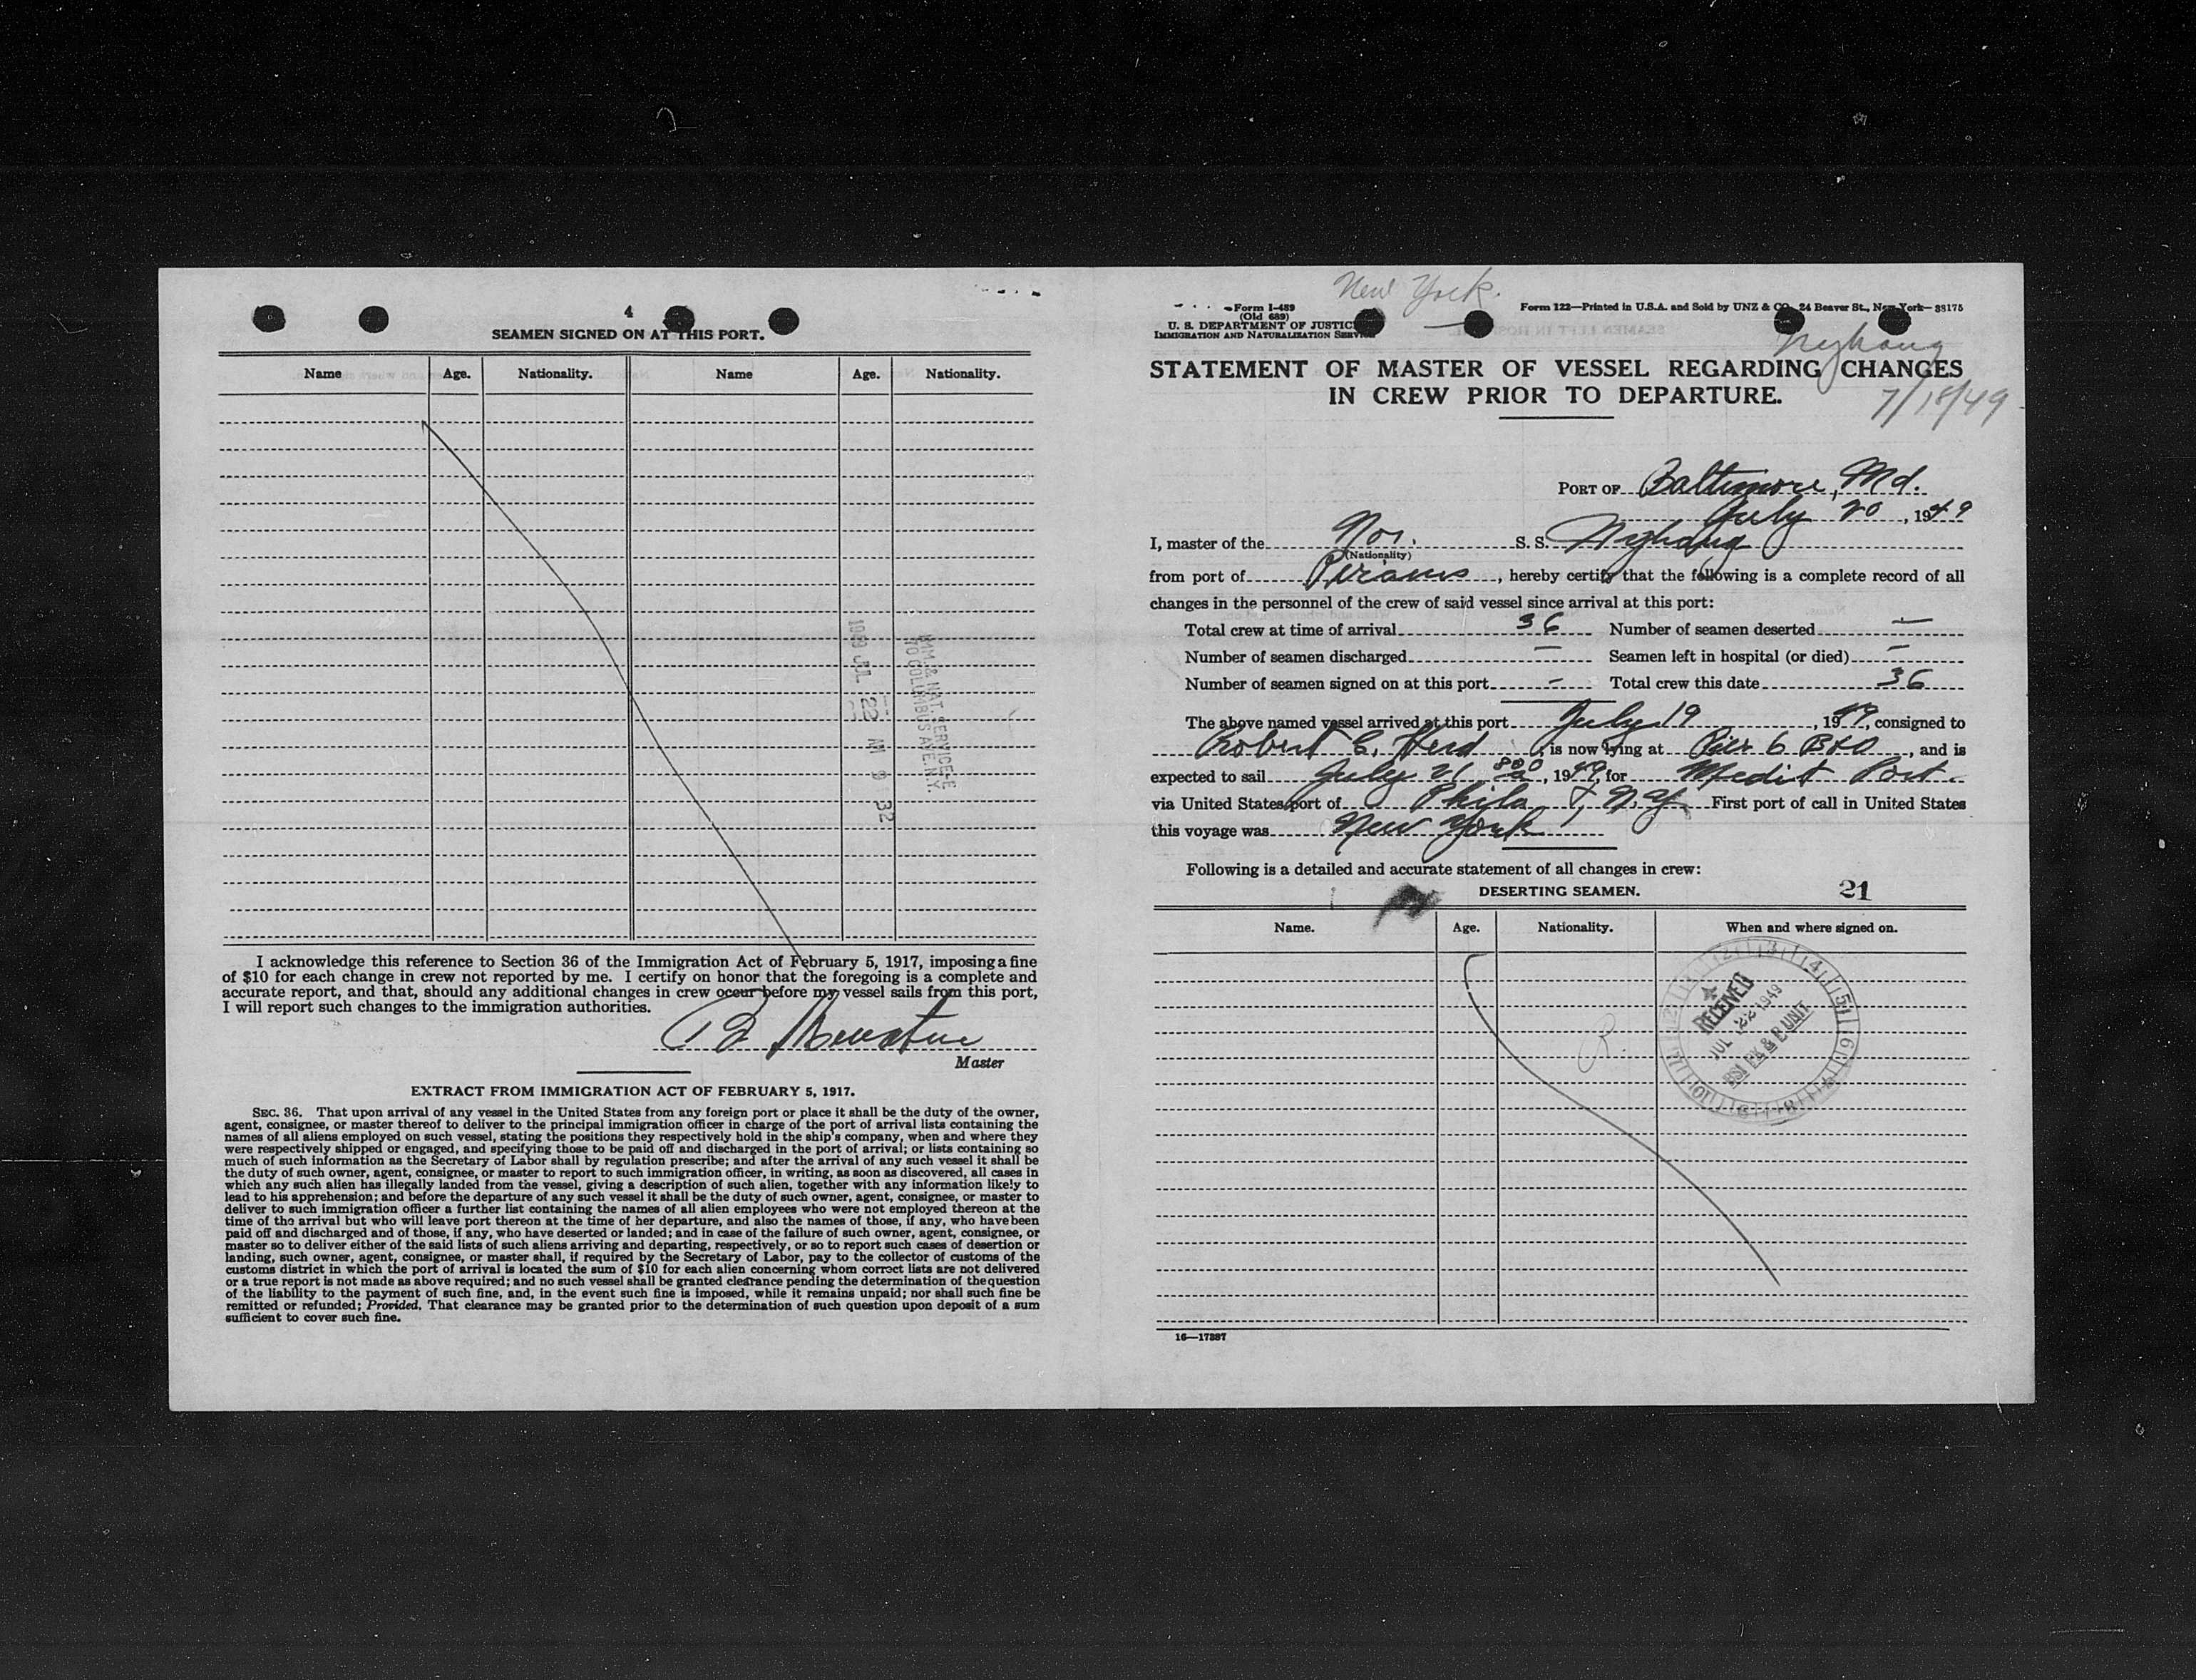 4
SEAMEN SIGNED ON AT THIS PORT.
Name Age. Nationality. Name Age. Nationality.
IMM. & NAT. SERVICE
70 COLUMBUS AVE. N.Y.
JUL 22 9 32
I acknowledge this reference to Section 36 of the Immigration Act of February 5, 1917, imposing a fine
of $10 for each change in crew not reported by me. I certify on honor that the foregoing is a complete and
accurate report, and that, should any additional changes in crew occur before my vessel sails from this port,
I will report such changes to the immigration authorities.
Master
EXTRACT FROM IMMIGRATION ACT OF FEBRUARY 5, 1917.
SEC. 36. That upon arrival of any vessel in the United States from any foreign port or place it shall be the duty of the owner,
agent, consignee, or master thereof to deliver to the principal immigration officer in charge of the port of arrival lists containing the
names of all aliens employed on such vessel, stating the positions they respectively hold in the ship's company, when and where they
were respectively shipped or engaged, and specifying those to be paid off and discharged in the port of arrival; or lists containing so
much of such information as the Secretary of Labor shall by regulation prescribe; and after the arrival of any such vessel it shall be
the duty of such owner, agent, consignee, or master to report to such immigration officer, in writing, as soon as discovered, all cases in
which any such alien has illegally landed from the vessel, giving a description of such alien, together with any information likely to
lead to his apprehension; and before the departure of any such vessel it shall be the duty of such owner, agent, consignee, or master to
deliver to such immigration officer a further list containing the names of all alien employees who were not employed thereon at the
time of the arrival but who will leave port thereon at the time of her departure, and also the names of those, if any, who have been
paid off and discharged and of those, if any, who have deserted or landed; and in case of the failure of such owner, agent, consignee, or
master so to deliver either of the said lists of such aliens arriving and departing, respectively, or so to report such cases of desertion or
landing, such owner, agent, consignee, or master shall, if required by the Secretary of Labor, pay to the collector of customs of the
customs district in which the port of arrival is located the sum of $10 for each alien concerning whom correct lists are not delivered
or a true report is not made as above required; and no such vessel shall be granted clearance pending the determination of the question
of the liability to the payment of such fine, and, in the event such fine is imposed, while it remains unpaid; nor shall such fine be
remitted or refunded; Provided, That clearance may be granted prior to the determination of such question upon deposit of a sum
sufficient to cover such fine.
New York.
Form I-489
(Old 689)
U. S. DEPARTMENT OF JUSTICE
IMMIGRATION AND NATURALIZATION SERVICE
Form 122—Printed in U.S.A. and Sold by UNZ & CO., 24 Beaver St., New York—38175
Nyhaug
7/18/49
STATEMENT OF MASTER OF VESSEL REGARDING CHANGES
IN CREW PRIOR TO DEPARTURE.
PORT OF Baltimore, Md.
July 20, 1949
I, master of the Nor. S. S. Nyhaug
(Nationality)
from port of Piraeus, hereby certify that the following is a complete record of all
changes in the personnel of the crew of said vessel since arrival at this port:
Total crew at time of arrival 36 Number of seamen deserted —
Number of seamen discharged — Seamen left in hospital (or died) —
Number of seamen signed on at this port - Total crew this date 36
The above named vessel arrived at this port July 19, 1949, consigned to
Robert C. Herd, is now lying at Pier 6 B&O, and is
expected to sail July 21 800 a, 1949, for Medit Port.
via United States port of Phila & N.Y. First port of call in United States
this voyage was New York
Following is a detailed and accurate statement of all changes in crew:
DESERTING SEAMEN. 21
Name. Age. Nationality. When and where signed on.
R.
RECEIVED
JUL 22 1949
BSI EX & B UNIT
16—17387